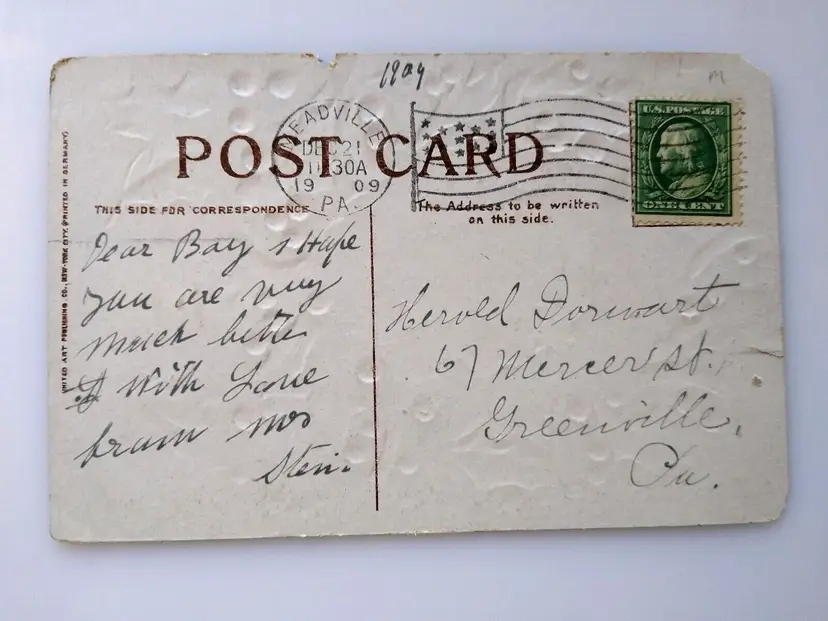 1909
M
U.S. POSTAGE
ONE CENT
MEADVILLE
DEC 21
11 30A
19 09
PA.
POST CARD
THIS SIDE FOR CORRESPONDENCE
The Address to be written
on this side.
UNITED ART PUBLISHING CO., NEW-YORK CITY. (PRINTED IN GERMANY)
Dear Boy I Hope
you are very
much better
With Love
from Mrs
Stein.
Herold Dorwart
67 Mercer St.
Greenville,
Pa.